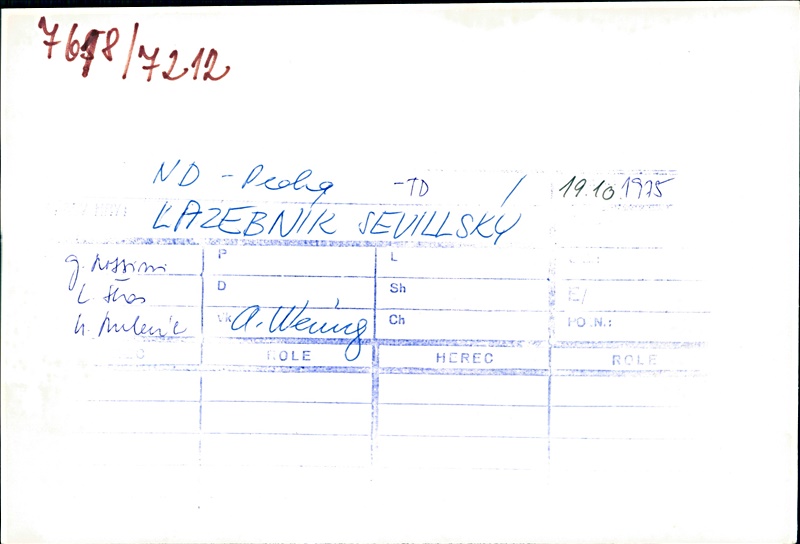 7618/7212
ND - Praha -TD / 19.10.1975
LAZEBNÍK SEVILLSKÝ
g. Rossini P L
L. Štros D Sh E/
vk A. Wenig Ch PO.N.:
ROLE HEREC ROLE